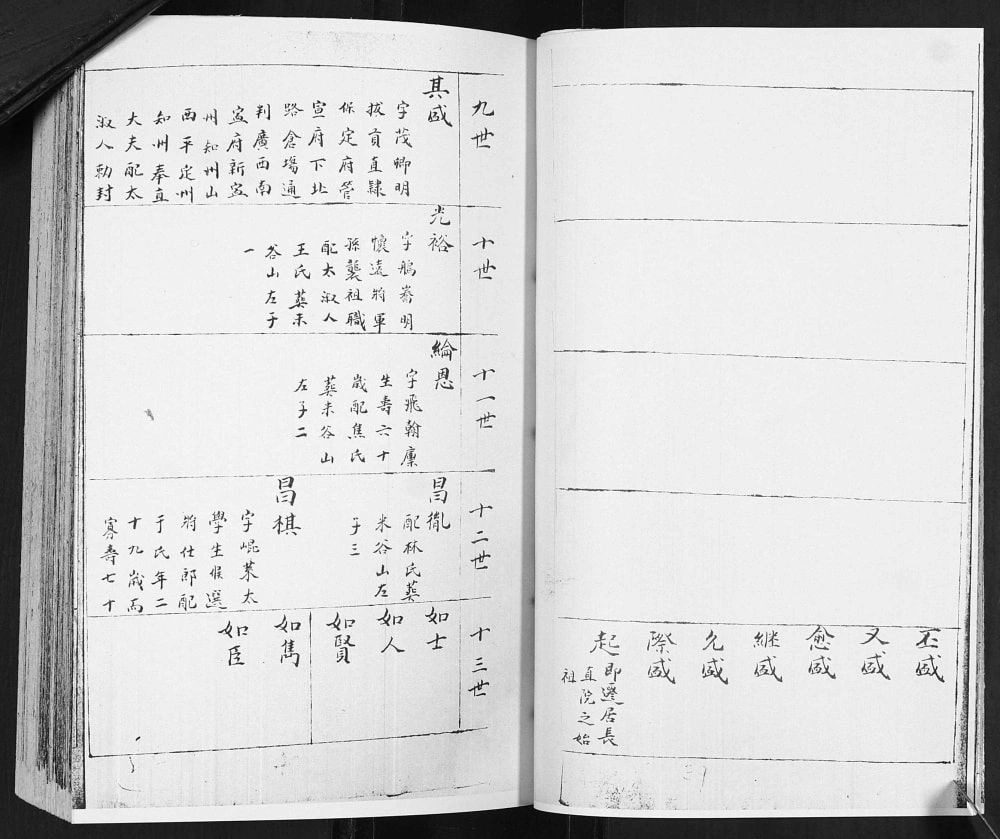 丕盛
又盛
愈盛
継盛
允盛
際盛
起
即遷居長
直院之始
祖
九世
其盛
字茂卿明
拔貢直隸
保定府管
宣府下北
路倉塲通
判廣西南
寍府新寍
州知州山
西平定州
知州奉直
大夫配太
淑人勅封
十世
光裕
字鵬騫明
懷遠将軍
孫襲祖職
配太淑人
王氏葬米
谷山左子
一
十一世
綸恩
字飛翰廩
生壽六十
歲配焦氏
葬米谷山
左子二
十二世
昌胤
配林氏葬
米谷山左
子三
昌棋
字崐萊太
學生候選
将仕郎配
于氏年二
十九歲而
寡壽七十
十三世
如士
如人
如賢
如雋
如臣